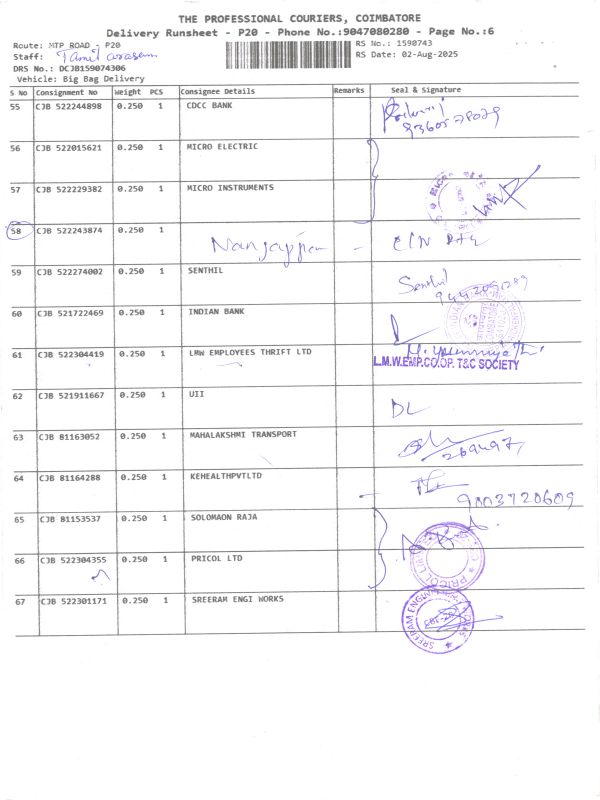 THE PROFESSIONAL COURIERS, COIMBATORE
Delivery Runsheet - P20 - Phone No.:9047080280 - Page No.:6
Route: MTP ROAD - P20
RS No.: 1590743
Staff: Tamil arasan
RS Date: 02-Aug-2025
DRS No.: DCJB159074306
Vehicle: Big Bag Delivery
S No Consignment No Weight PCS Consignee Details Remarks Seal & Signature
55 CJB 522244898 0.250 1 CDCC BANK
56 CJB 522015621 0.250 1 MICRO ELECTRIC
57 CJB 522229382 0.250 1 MICRO INSTRUMENTS
58 CJB 522243874 0.250 1
59 CJB 522274002 0.250 1 SENTHIL Senthil
60 CJB 521722469 0.250 1 INDIAN BANK
61 CJB 522304419 0.250 1 LMW EMPLOYEES THRIFT LTD
L.M.W.EMP.CO.OP. T&C SOCIETY
62 CJB 521911667 0.250 1 UII DL
63 CJB 81163052 0.250 1 MAHALAKSHMI TRANSPORT
64 CJB 81164288 0.250 1 KEHEALTHPVTLTD
9003720609
65 CJB 81153537 0.250 1 SOLOMAON RAJA
66 CJB 522304355 0.250 1 PRICOL LTD
67 CJB 522301171 0.250 1 SREERAM ENGI WORKS